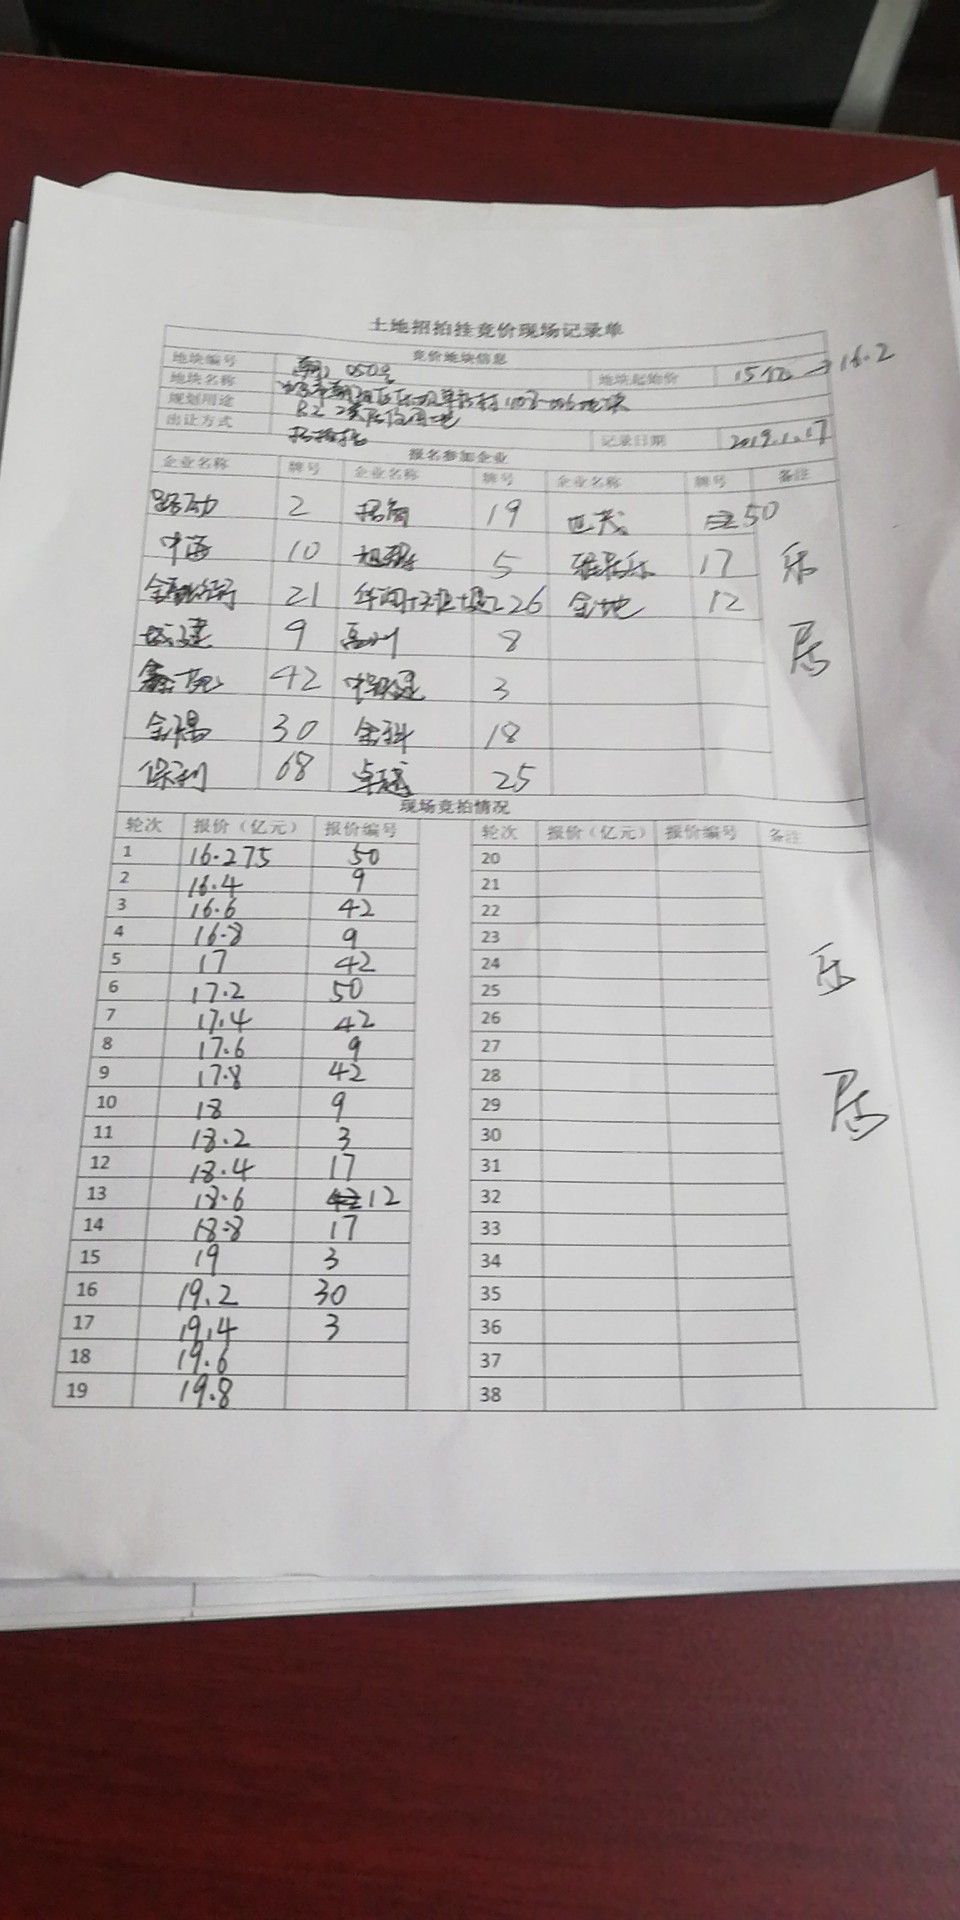 土地招拍挂竞价现场记录单
竞价地块信息
地块编号 地块起始价 15亿 → 16.2
地块名称
规划用途 R2 二类居住用地
出让方式 招拍挂 记录日期 2019.1.17
报名参加企业
企业名称 牌号 企业名称 牌号 企业名称 牌号 备注
2 招商 19 世茂 50
中海 10 旭辉 5 雅居乐 17 乐
21 26 金地 12
城建 9 禹州 8 居
42 中铁建 3
金隅 30 金科 18
保利 68 卓越 25
现场竞拍情况
轮次 报价（亿元） 报价编号 轮次 报价（亿元） 报价编号 备注
1 16.275 50 20
2 16.4 9 21
3 16.6 42 22
4 16.8 9 23
5 17 42 24 乐
6 17.2 50 25
7 17.4 42 26
8 17.6 9 27
9 17.8 42 28
10 18 9 29 居
11 18.2 3 30
12 18.4 17 31
13 18.6 12 32
14 18.8 17 33
15 19 3 34
16 19.2 30 35
17 19.4 3 36
18 19.6 37
19 19.8 38